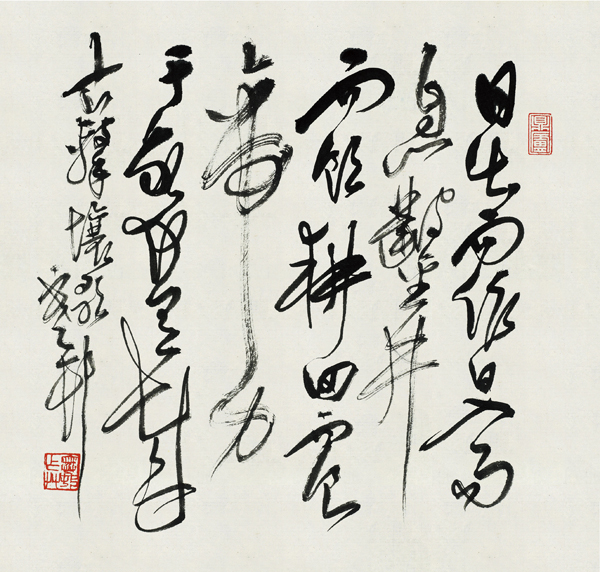 日出而作日入而
息鑿井
而飲耕田而食
帝力
于我何有哉
古擊壤歌